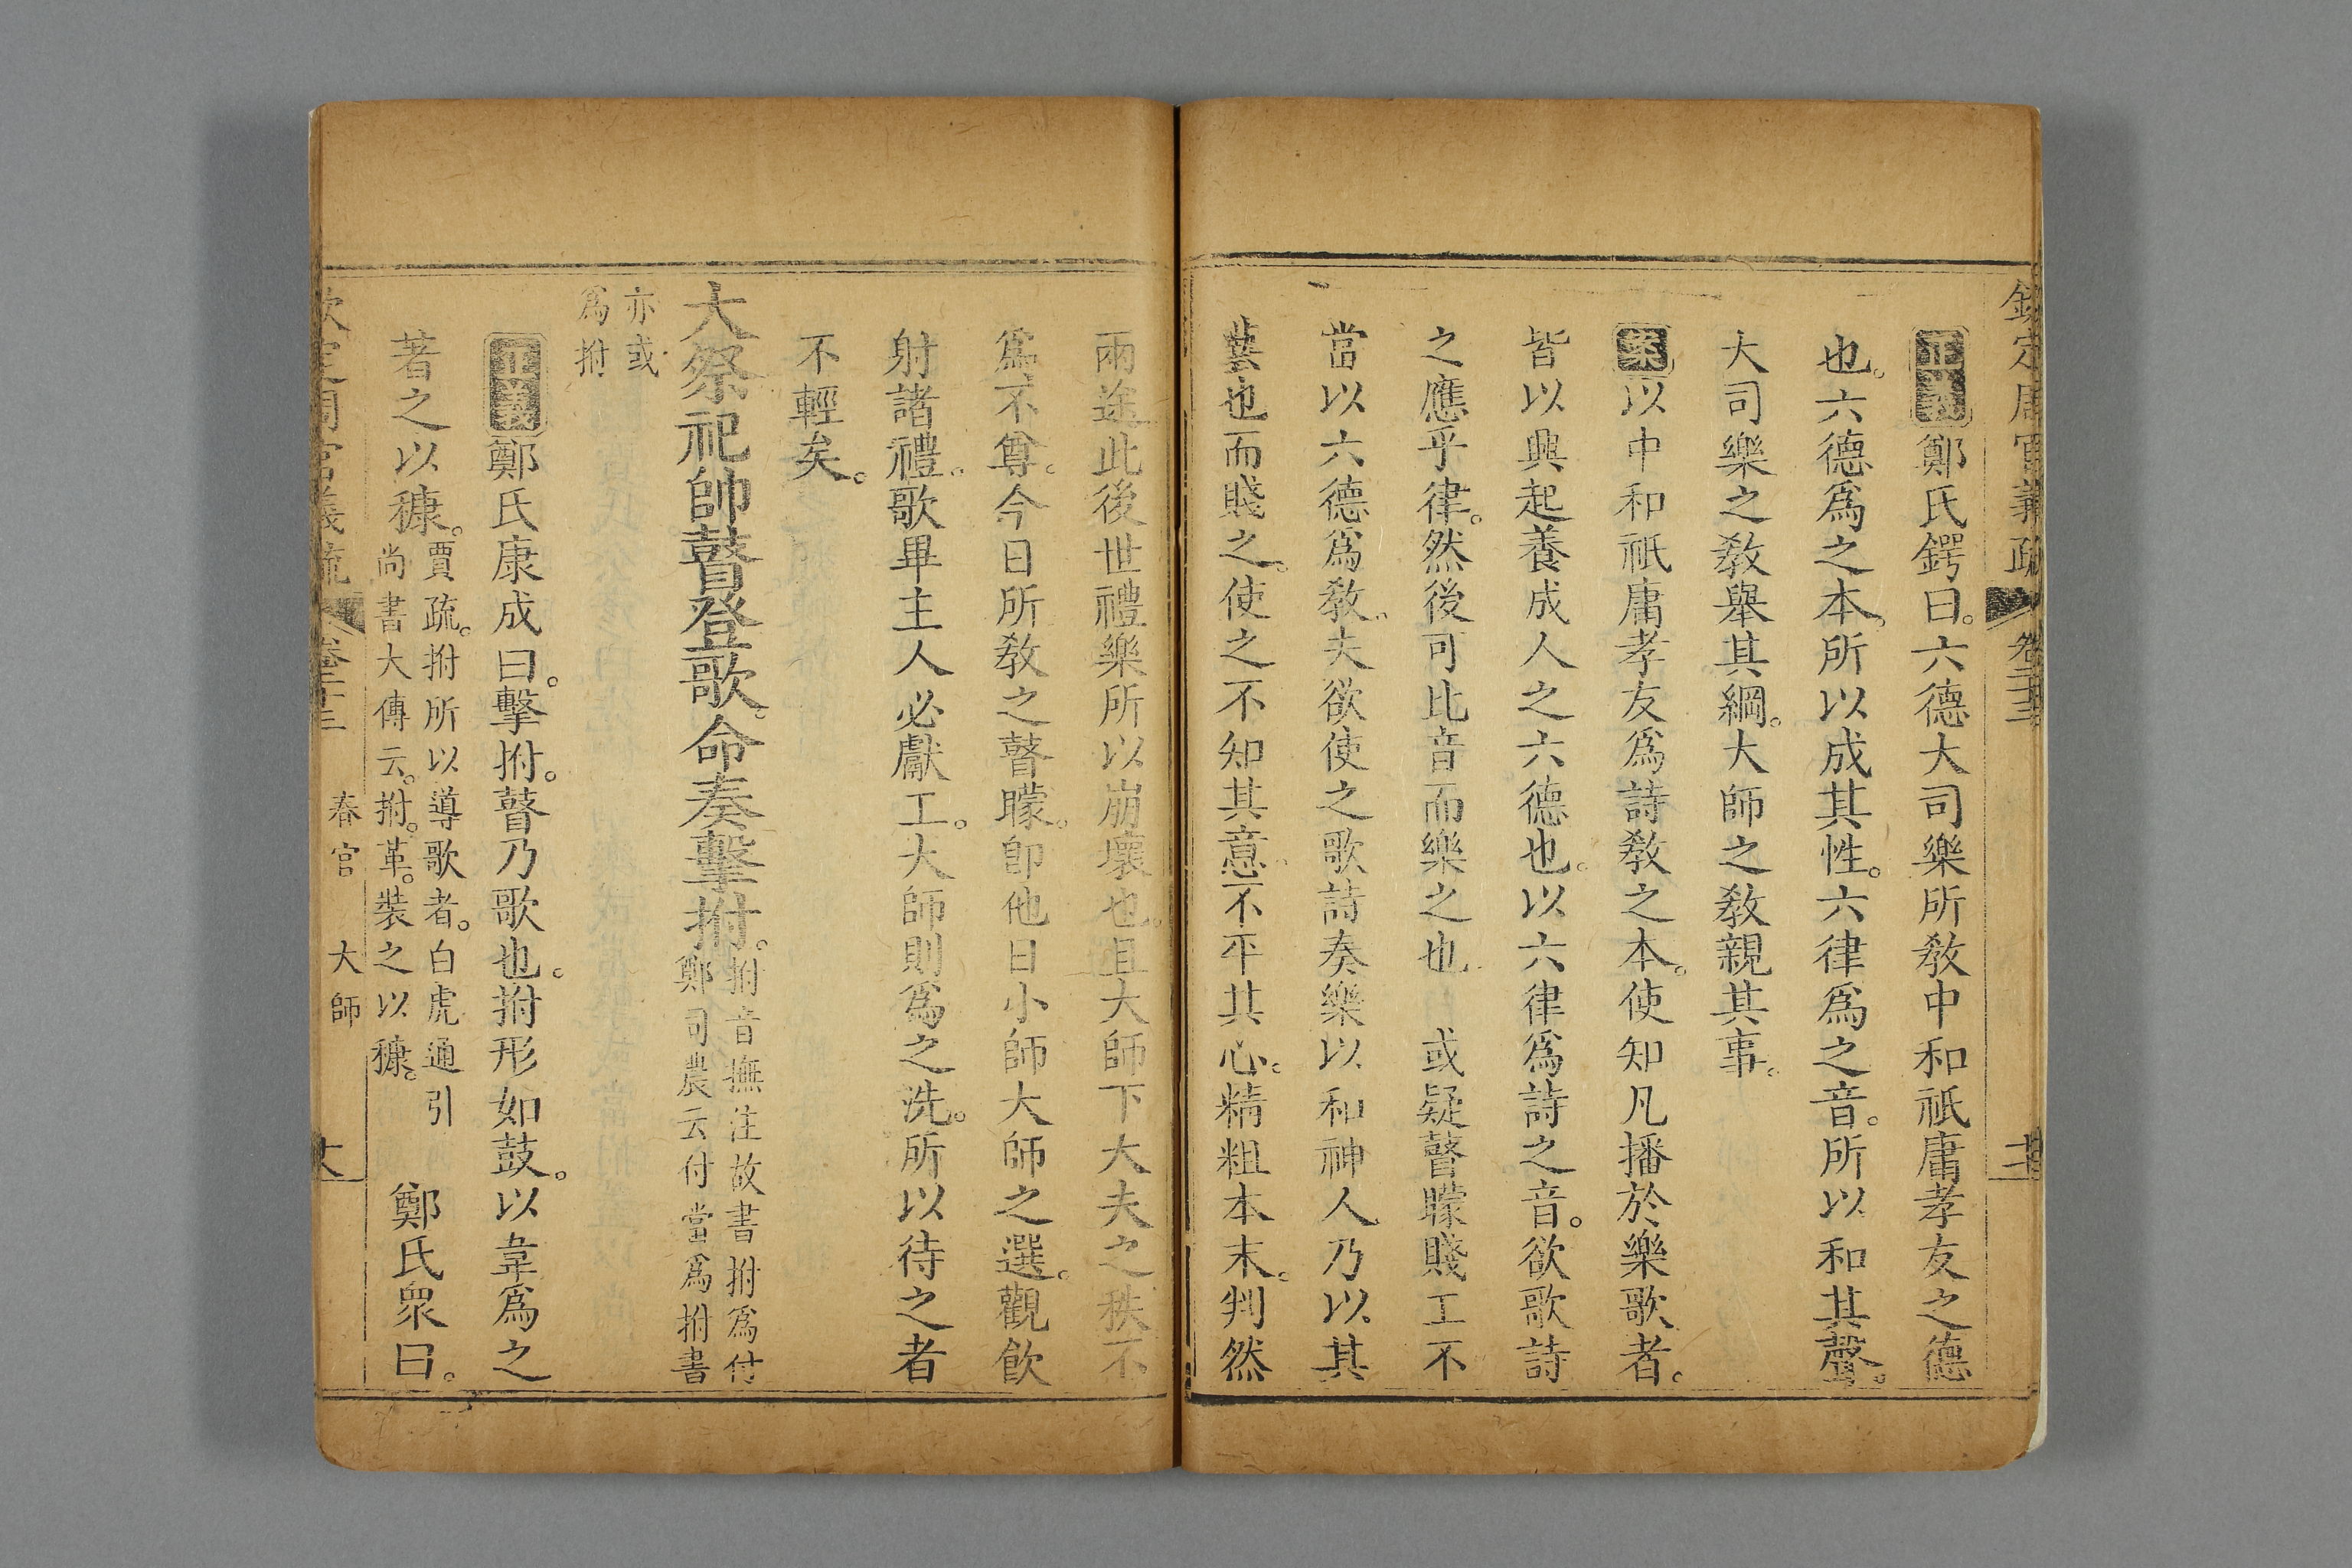 欽定周官義疏 卷二十三
正義鄭氏鍔曰。六德大司樂所敎中和祇庸孝友之德
也。六德爲之本。所以成其性。六律爲之音。所以和其聲。
大司樂之敎舉其綱。大師之敎親其事。
案以中和祇庸孝友爲詩敎之本。使知凡播於樂歌者。
皆以興起養成人之六德也。以六律爲詩之音。欲歌詩
之應乎律。然後可比音而樂之也 或疑瞽矇賤工不
當以六德爲敎。夫欲使之歌詩奏樂以和神人乃以其
藝也而賤之。使之不知其意。不平其心。精粗本末。判然
兩途此後世禮樂所以崩壞也。且大師下大夫之秩不
爲不尊。今日所敎之瞽矇。卽他日小師大師之選。觀飮
射諸禮。歌畢主人必獻工。大師則爲之洗。所以待之者
不輕矣。
大祭祀帥瞽登歌。命奏擊拊。拊音撫注故書拊爲付
鄭司農云付當爲拊書
亦或
爲拊
正義鄭氏康成曰。擊拊。瞽乃歌也。拊形如鼓。以韋爲之
著之以穅。賈疏。拊所以導歌者。白虎通引
尚書大傳云。拊。革。裝之以穅。 鄭氏衆曰。
欽定周官義疏 卷二十三 春官 大師